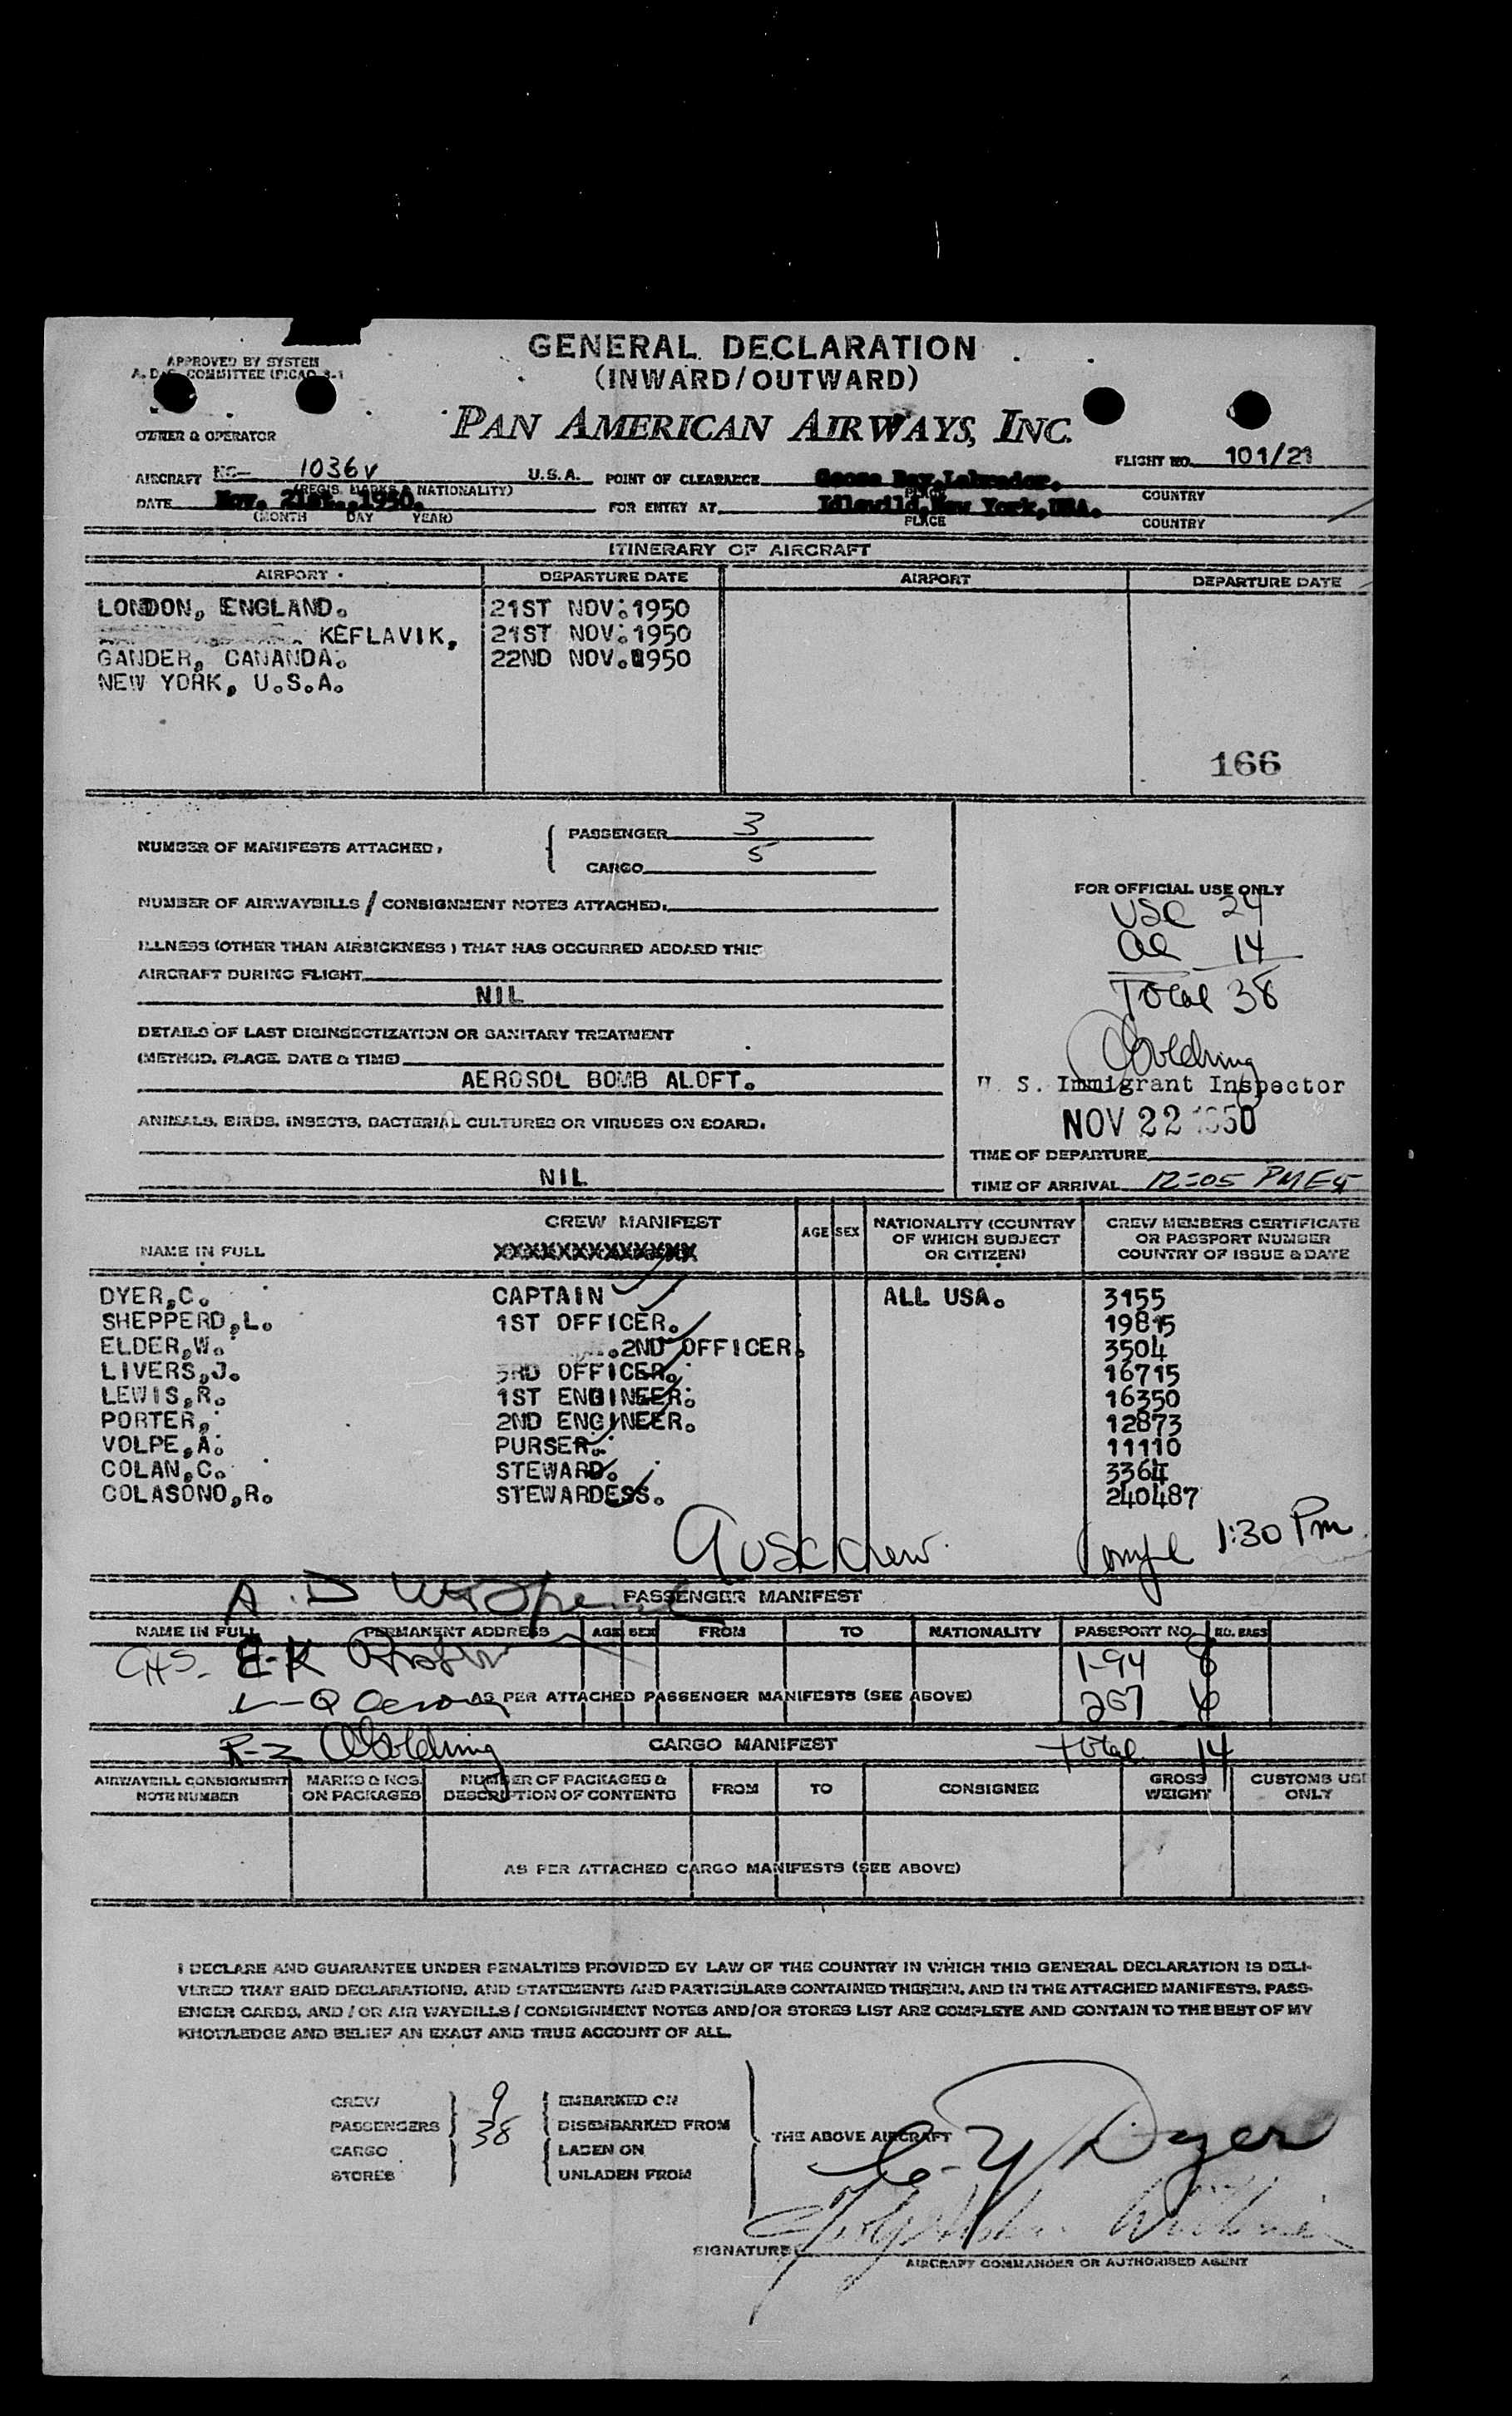 GENERAL DECLARATION
(INWARD/OUTWARD)
APPROVED BY SYSTEM
COMMITTEE
PAN AMERICAN AIRWAYS, INC.
OWNER & OPERATOR
FLIGHT NO. 101/21
AIRCRAFT NC- 1036V U.S.A. POINT OF CLEARANCE Goose Bay, Labrador.
(REGIS. MARKS & NATIONALITY) PLACE COUNTRY
DATE Nov. 21st.,1950. FOR ENTRY AT Idlewild,New York,USA.
(MONTH DAY YEAR) PLACE COUNTRY
ITINERARY OF AIRCRAFT
AIRPORT DEPARTURE DATE AIRPORT DEPARTURE DATE
LONDON, ENGLAND. 21ST NOV.1950
KEFLAVIK, 21ST NOV.1950
GANDER, CANANDA. 22ND NOV.1950
NEW YORK, U.S.A.
166
NUMBER OF MANIFESTS ATTACHED, PASSENGER 3
CARGO 5
NUMBER OF AIRWAYBILLS / CONSIGNMENT NOTES ATTACHED.
ILLNESS (OTHER THAN AIRSICKNESS) THAT HAS OCCURRED ABOARD THIS
AIRCRAFT DURING FLIGHT
NIL
DETAILS OF LAST DISINSECTIZATION OR SANITARY TREATMENT
(METHOD, PLACE, DATE & TIME)
AEROSOL BOMB ALOFT.
ANIMALS, BIRDS, INSECTS, BACTERIAL CULTURES OR VIRUSES ON BOARD.
NIL
FOR OFFICIAL USE ONLY
USC 24
al 14
Total 38
Goldring
U. S. Immigrant Inspector
NOV 22 1950
TIME OF DEPARTURE
TIME OF ARRIVAL 12:05 PM
CREW MANIFEST AGE SEX NATIONALITY (COUNTRY OF WHICH SUBJECT OR CITIZEN) CREW MEMBERS CERTIFICATE OR PASSPORT NUMBER COUNTRY OF ISSUE & DATE
NAME IN FULL XXXXXXXXXXXXX
DYER,C. CAPTAIN ALL USA. 3155
SHEPPERD,L. 1ST OFFICER. 19815
ELDER,W. .2ND OFFICER. 3504
LIVERS,J. 3RD OFFICER. 16715
LEWIS,R. 1ST ENGINEER. 16350
PORTER, 2ND ENGINEER. 12873
VOLPE,A. PURSER. 11110
COLAN,C. STEWARD. 3364
COLASONO,R. STEWARDESS. 240487
9 USC Crew 1:30 Pm
PASSENGER MANIFEST
NAME IN FULL PERMANENT ADDRESS AGE SEX FROM TO NATIONALITY PASSPORT NO. NO. BAGS
1-94 8
AS PER ATTACHED PASSENGER MANIFESTS (SEE ABOVE) 257 6
R-2 Goldring CARGO MANIFEST total 14
AIRWAYBILL CONSIGNMENT NOTE NUMBER MARKS & NOS. ON PACKAGES NUMBER OF PACKAGES & DESCRIPTION OF CONTENTS FROM TO CONSIGNEE GROSS WEIGHT CUSTOMS USE ONLY
AS PER ATTACHED CARGO MANIFESTS (SEE ABOVE)
I DECLARE AND GUARANTEE UNDER PENALTIES PROVIDED BY LAW OF THE COUNTRY IN WHICH THIS GENERAL DECLARATION IS DELI-
VERED THAT SAID DECLARATIONS, AND STATEMENTS AND PARTICULARS CONTAINED THEREIN, AND IN THE ATTACHED MANIFESTS, PASS-
ENGER CARDS, AND / OR AIR WAYBILLS / CONSIGNMENT NOTES AND/OR STORES LIST ARE COMPLETE AND CONTAIN TO THE BEST OF MY
KNOWLEDGE AND BELIEF AN EXACT AND TRUE ACCOUNT OF ALL.
CREW 9 EMBARKED ON
PASSENGERS 38 DISEMBARKED FROM
CARGO LADEN ON
STORES UNLADEN FROM
THE ABOVE AIRCRAFT
C. Y Dyer
SIGNATURE
AIRCRAFT COMMANDER OR AUTHORISED AGENT